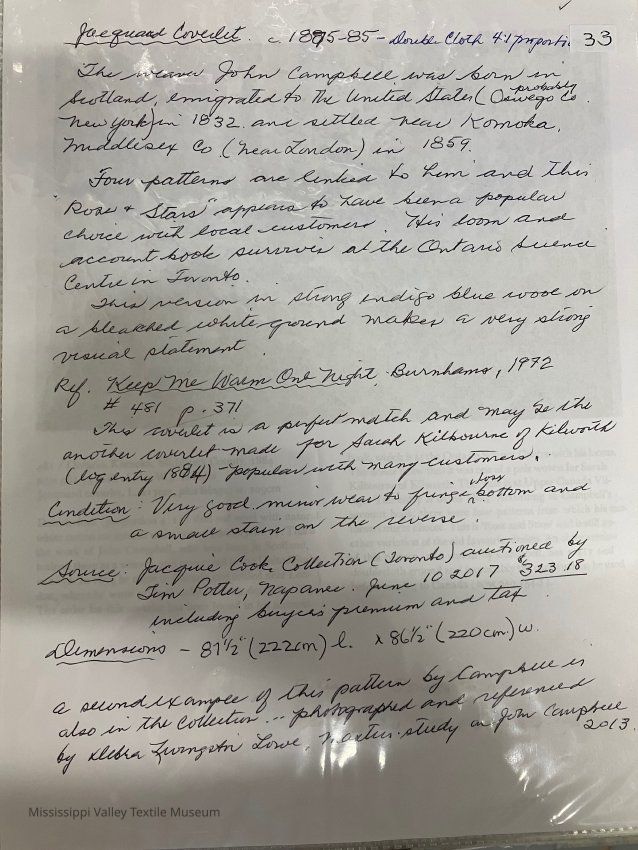 Jacquard Coverlet. c 1875-85 - Double Cloth 4:1 proportio 33
The weaver John Campbell was born in
Scotland, emigrated to the United States (probably Oswego Co.
New York) in 1832 and settled near Komoka,
Middlesex Co. (near London) in 1859.
Four patterns are linked to him and this
"Rose & Stars" appears to have been a popular
choice with local customers. His loom and
account book survives at the Ontario Science
Centre in Toronto.
This version in strong indigo blue wool on
a bleached white ground makes a very strong
visual statement.
Ref. Keep Me Warm One Night, Burnhams, 1972
# 481 p. 371
This coverlet is a perfect match and may be the
another coverlet made for Sarah Kilbourne of Kilworth
(log entry 1884) - popular with many customers.
Condition: Very good. minor wear to fringe bottom and
a small stain on the reverse.
Source: Jacquie Cooke Collection (Toronto) auctioned by
Jim Potter, Napanee. June 10 2017 $323.18
including buyer's premium and tax
Dimensions - 87½" (222cm) l. x 86½" (220cm) w.
a second example of this pattern by Campbell is
also in the Collection ... photographed and referenced
by Debra Livingston Lowe, study on John Campbell
2013.
Mississippi Valley Textile Museum